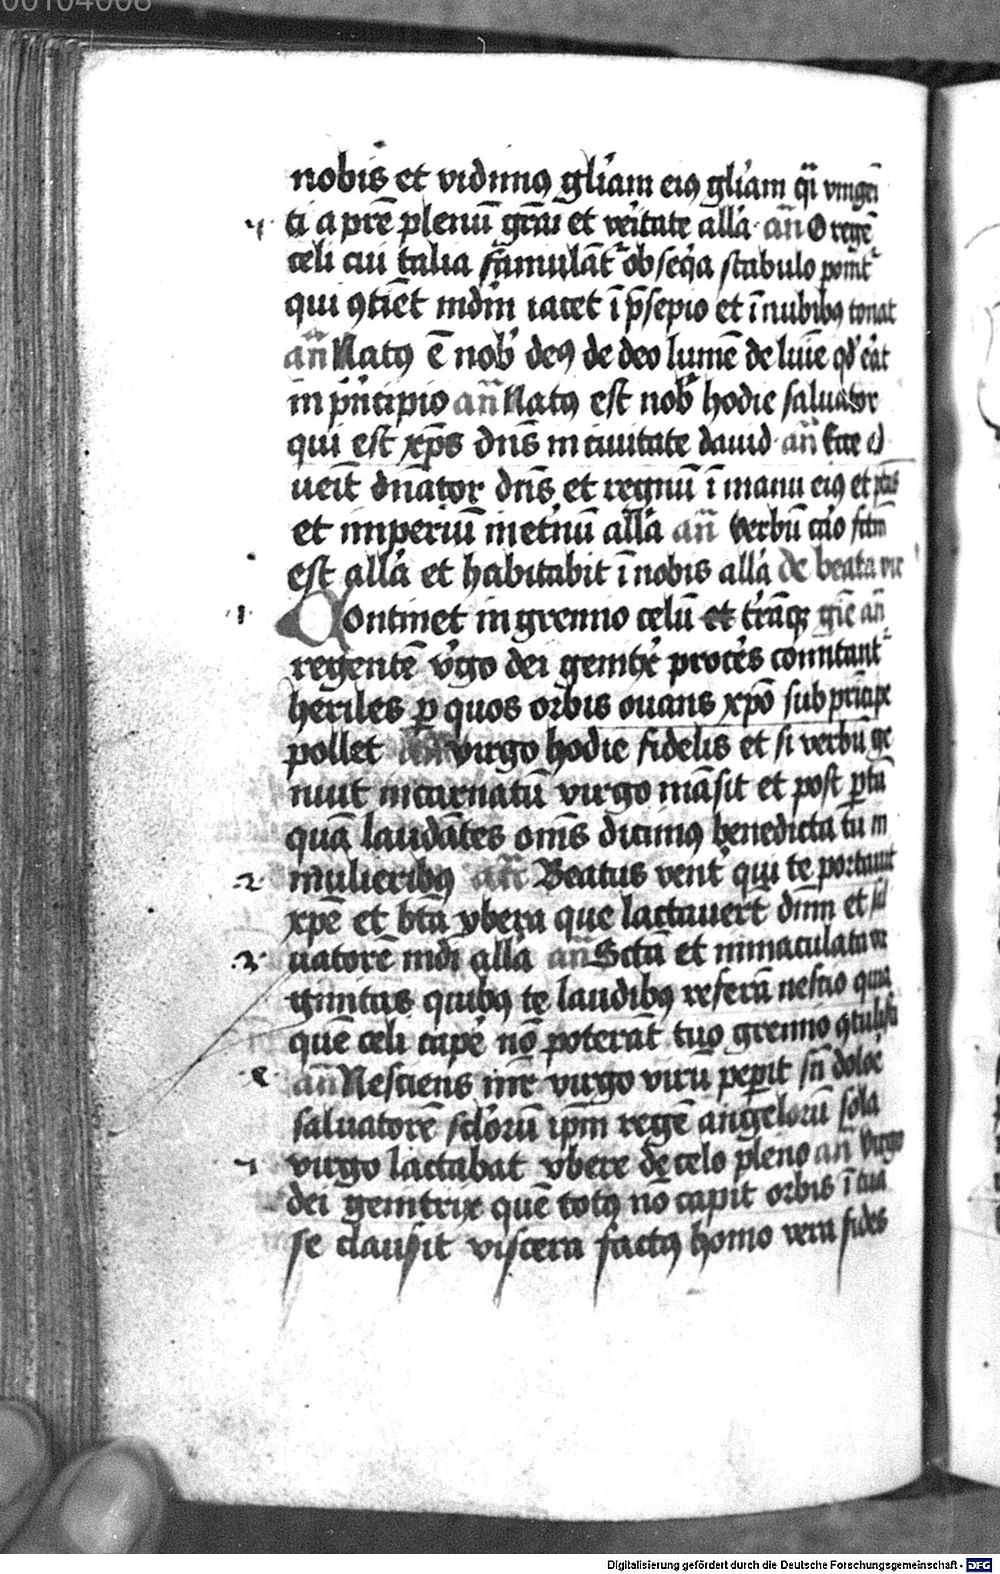 00104008
nobis et vidimꝰ gl̄iam eiꝰ gl̄iam q̄i vnigēi
ti a pr̄e plenū gr̄a et vēitate all̄a an̄ O regē
celi cui talia famulāt᷑ obseq̄a stabulo pōit᷑
qui ꝯtiēt mdm̄ iacet ī p̄sepio et ī nubibꝰ tonat
an̄ Natꝰ ē nob̄ deꝰ de deo lumē de luīe qd̄ ēat
in pⁱncipio an̄ Natꝰ est nob̄ hodie saluator
qui est xp̄s dn̄s in ciuitate dauid an̄ Ecce
ueīt dn̄ator dn̄s et regnū ī manu eiꝰ et
et imperiū
est all̄a et habitabit ī nobis all̄a de beata vir
Continet in gremio celū et tr̄āqꝫ gīe an̄
regentē v̄go dei genitⁱx proceˢ comitant᷑
heriles ꝑ quos orbis ouans xp̄o sub pⁱncipe
pollet virgo hodie fidelis et si verbū ge
nuit incarnatū virgo māsit et post ꝑtū
quā laudātes om̄s dicimꝰ benedicta tu in
mulieribꝰ an̄ Beatus vent᷑ qui te portauit
xp̄e et bt̄a vbera que lactauert̄ dn̄m et sal
uatorē mdi all̄a an̄ Sctā et inmaculata vir
ginitas quibꝰ te laudibꝰ referā nescio quia
quē celi capē nō poterāt tuo gremio ꝯtulisti
an̄ Nesciens mr̄ virgo virū peꝑit sn̄ doloē
saluatorē sclorū ip̄m regē angelorū sola
virgo lactabat vbere de celo pleno an̄ Virgo
dei genitrix quē totꝰ nō capit orbis ī tua
se clausit viscera factꝰ homo vera fides
Digitalisierung gefördert durch die Deutsche Forschungsgemeinschaft - DFG